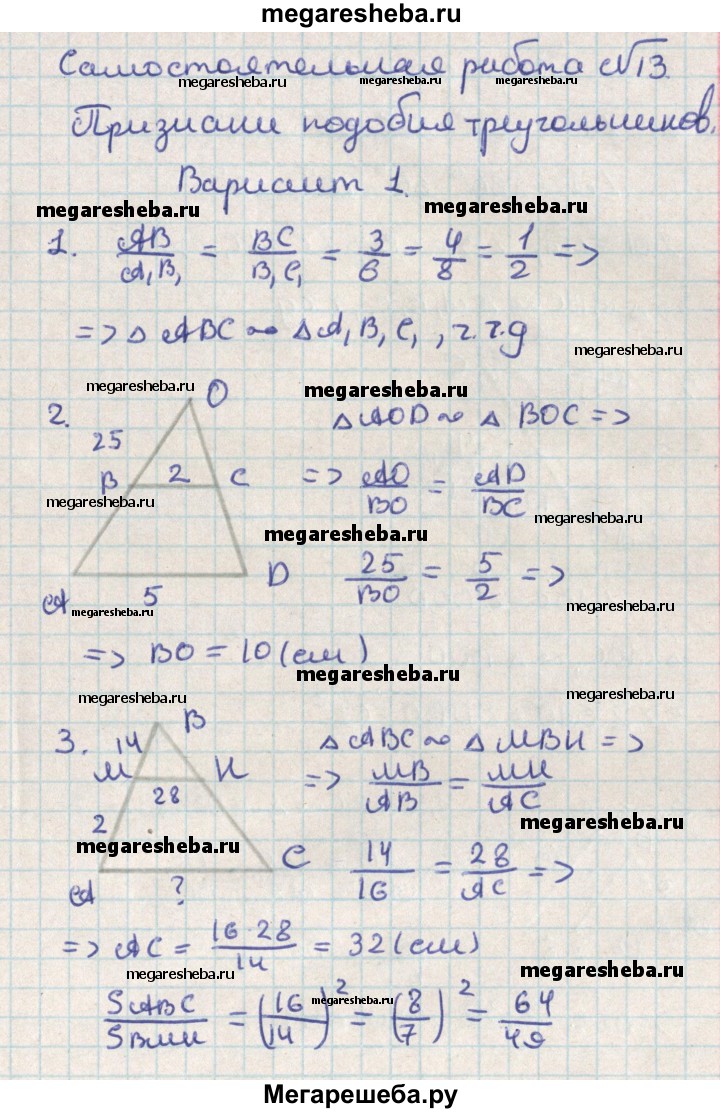 megaresheba.ru
Самостоятельная работа №13.
megaresheba.ru megaresheba.ru megaresheba.ru
Признаки подобия треугольников.
Вариант 1.
megaresheba.ru megaresheba.ru
1. AB/A₁B₁ = BC/B₁C₁ = 3/6 = 4/8 = 1/2 =>
=> △ABC ~ △A₁B₁C₁, ч.т.д
megaresheba.ru
megaresheba.ru megaresheba.ru
2. O
25
B 2 C
A 5 D
△AOD ~ △BOC =>
=> AO/BO = AD/BC
megaresheba.ru megaresheba.ru
megaresheba.ru
25/BO = 5/2 =>
megaresheba.ru megaresheba.ru
=> BO = 10 (см)
megaresheba.ru
megaresheba.ru megaresheba.ru
3. B
14
M H
28
2
A ? C
△ABC ~ △MBH =>
=> MB/AB = MH/AC
megaresheba.ru
megaresheba.ru
14/16 = 28/AC =>
=> AC = 16·28/14 = 32 (см)
megaresheba.ru megaresheba.ru
megaresheba.ru
SABC/SBMH = (16/14)² = (8/7)² = 64/49
Мегарешеба.ру